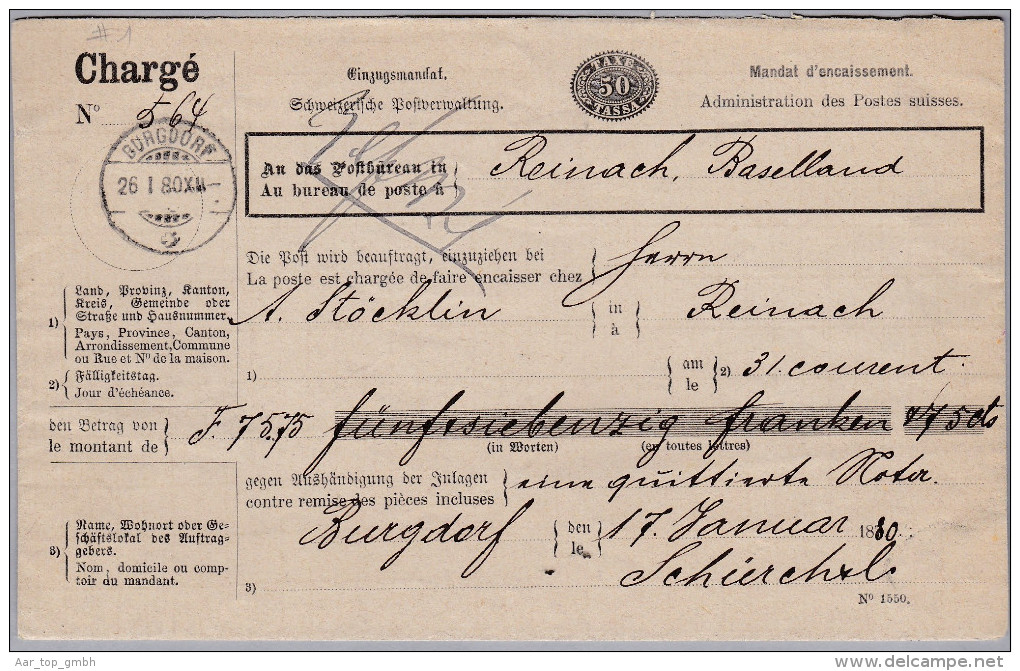 # 1
Chargé
Nº 564
Einzugsmandat.
Schweizerische Postverwaltung.
TAXE
50
TASSA
Mandat d'encaissement.
Administration des Postes suisses.
BURGDORF
26 I 80 XII
An das Postbüreau in
Au bureau de poste à
Reinach, Baselland
Die Post wird beauftragt, einzuziehen bei
La poste est chargée de faire encaisser chez
Herrn
A. Stöcklin
in
à
Reinach
1) Land, Provinz, Kanton,
Kreis, Gemeinde oder
Straße und Hausnummer.
Pays, Province, Canton,
Arrondissement, Commune
ou Rue et Nº de la maison.
2) Fälligkeitstag.
Jour d'échéance.
1)
am
le
2) 31. courent.
den Betrag von
le montant de
F. 75.75 fünfsiebenzig franken & 75 cts
(in Worten) (en toutes lettres)
gegen Aushändigung der Inlagen
contre remise des pièces incluses
eine quittierte Nota.
Burgdorf
den
le
17. Januar 1880.
3) Name, Wohnort oder Ge-
schäftslokal des Auftrag-
gebers.
Nom, domicile ou comp-
toir du mandant.
3)
Nº 1550.
Aar_top_gmbh
www.delcampe.net